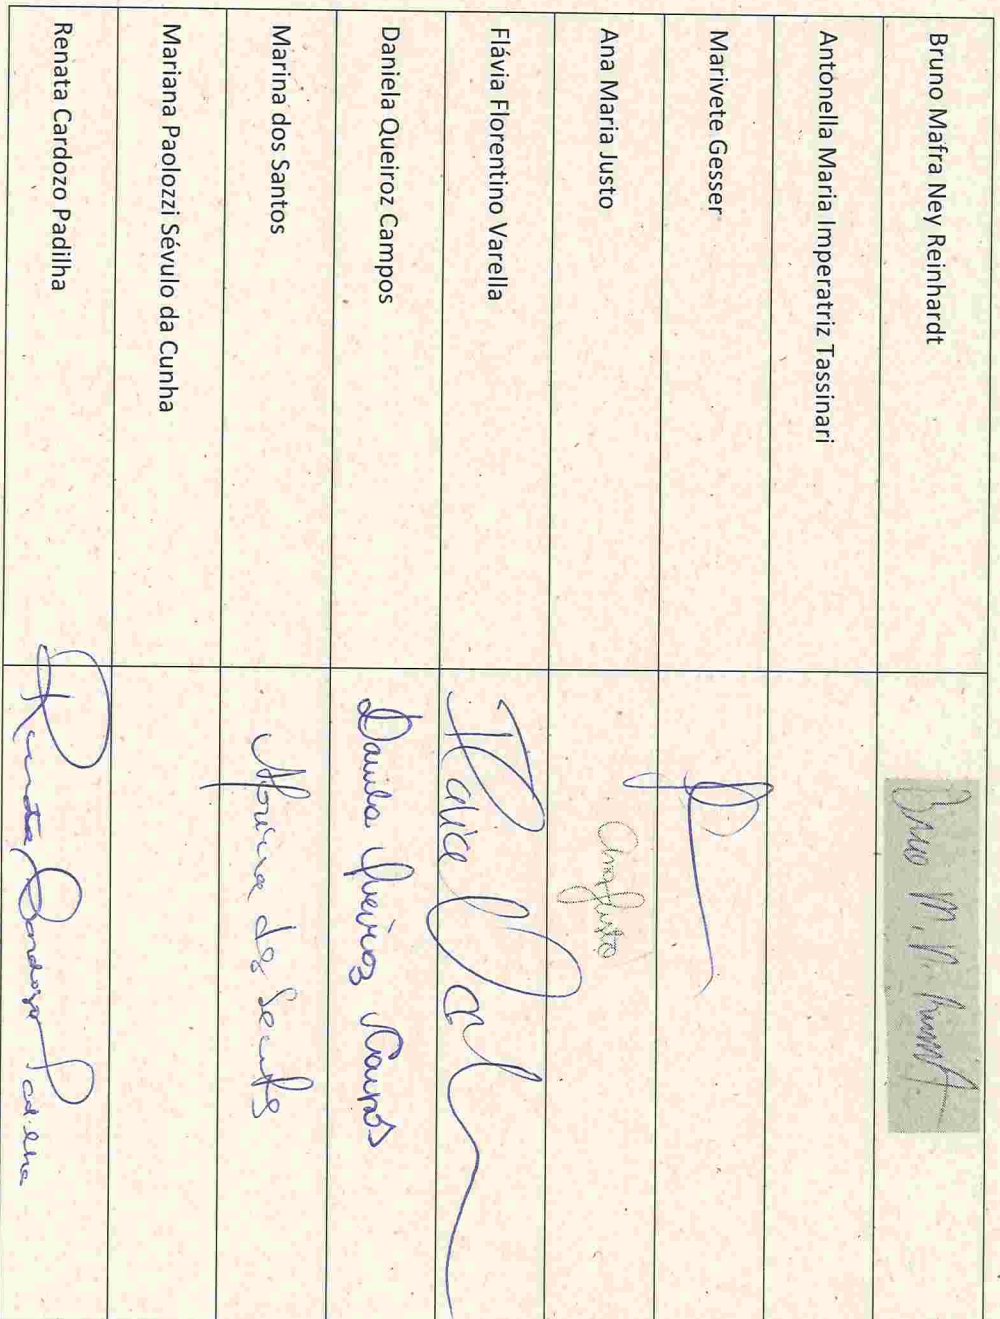 Bruno Mafra Ney Reinhardt
Bruno M. N.
Antonella Maria Imperatriz Tassinari
Marivete Gesser
Ana Maria Justo
Ana Justo
Flávia Florentino Varella
Flávia
Daniela Queiroz Campos
Daniela Queiroz Campos
Marina dos Santos
Marina dos Santos
Mariana Paolozzi Sérvulo da Cunha
Renata Cardozo Padilha
Renata Cardozo Padilha